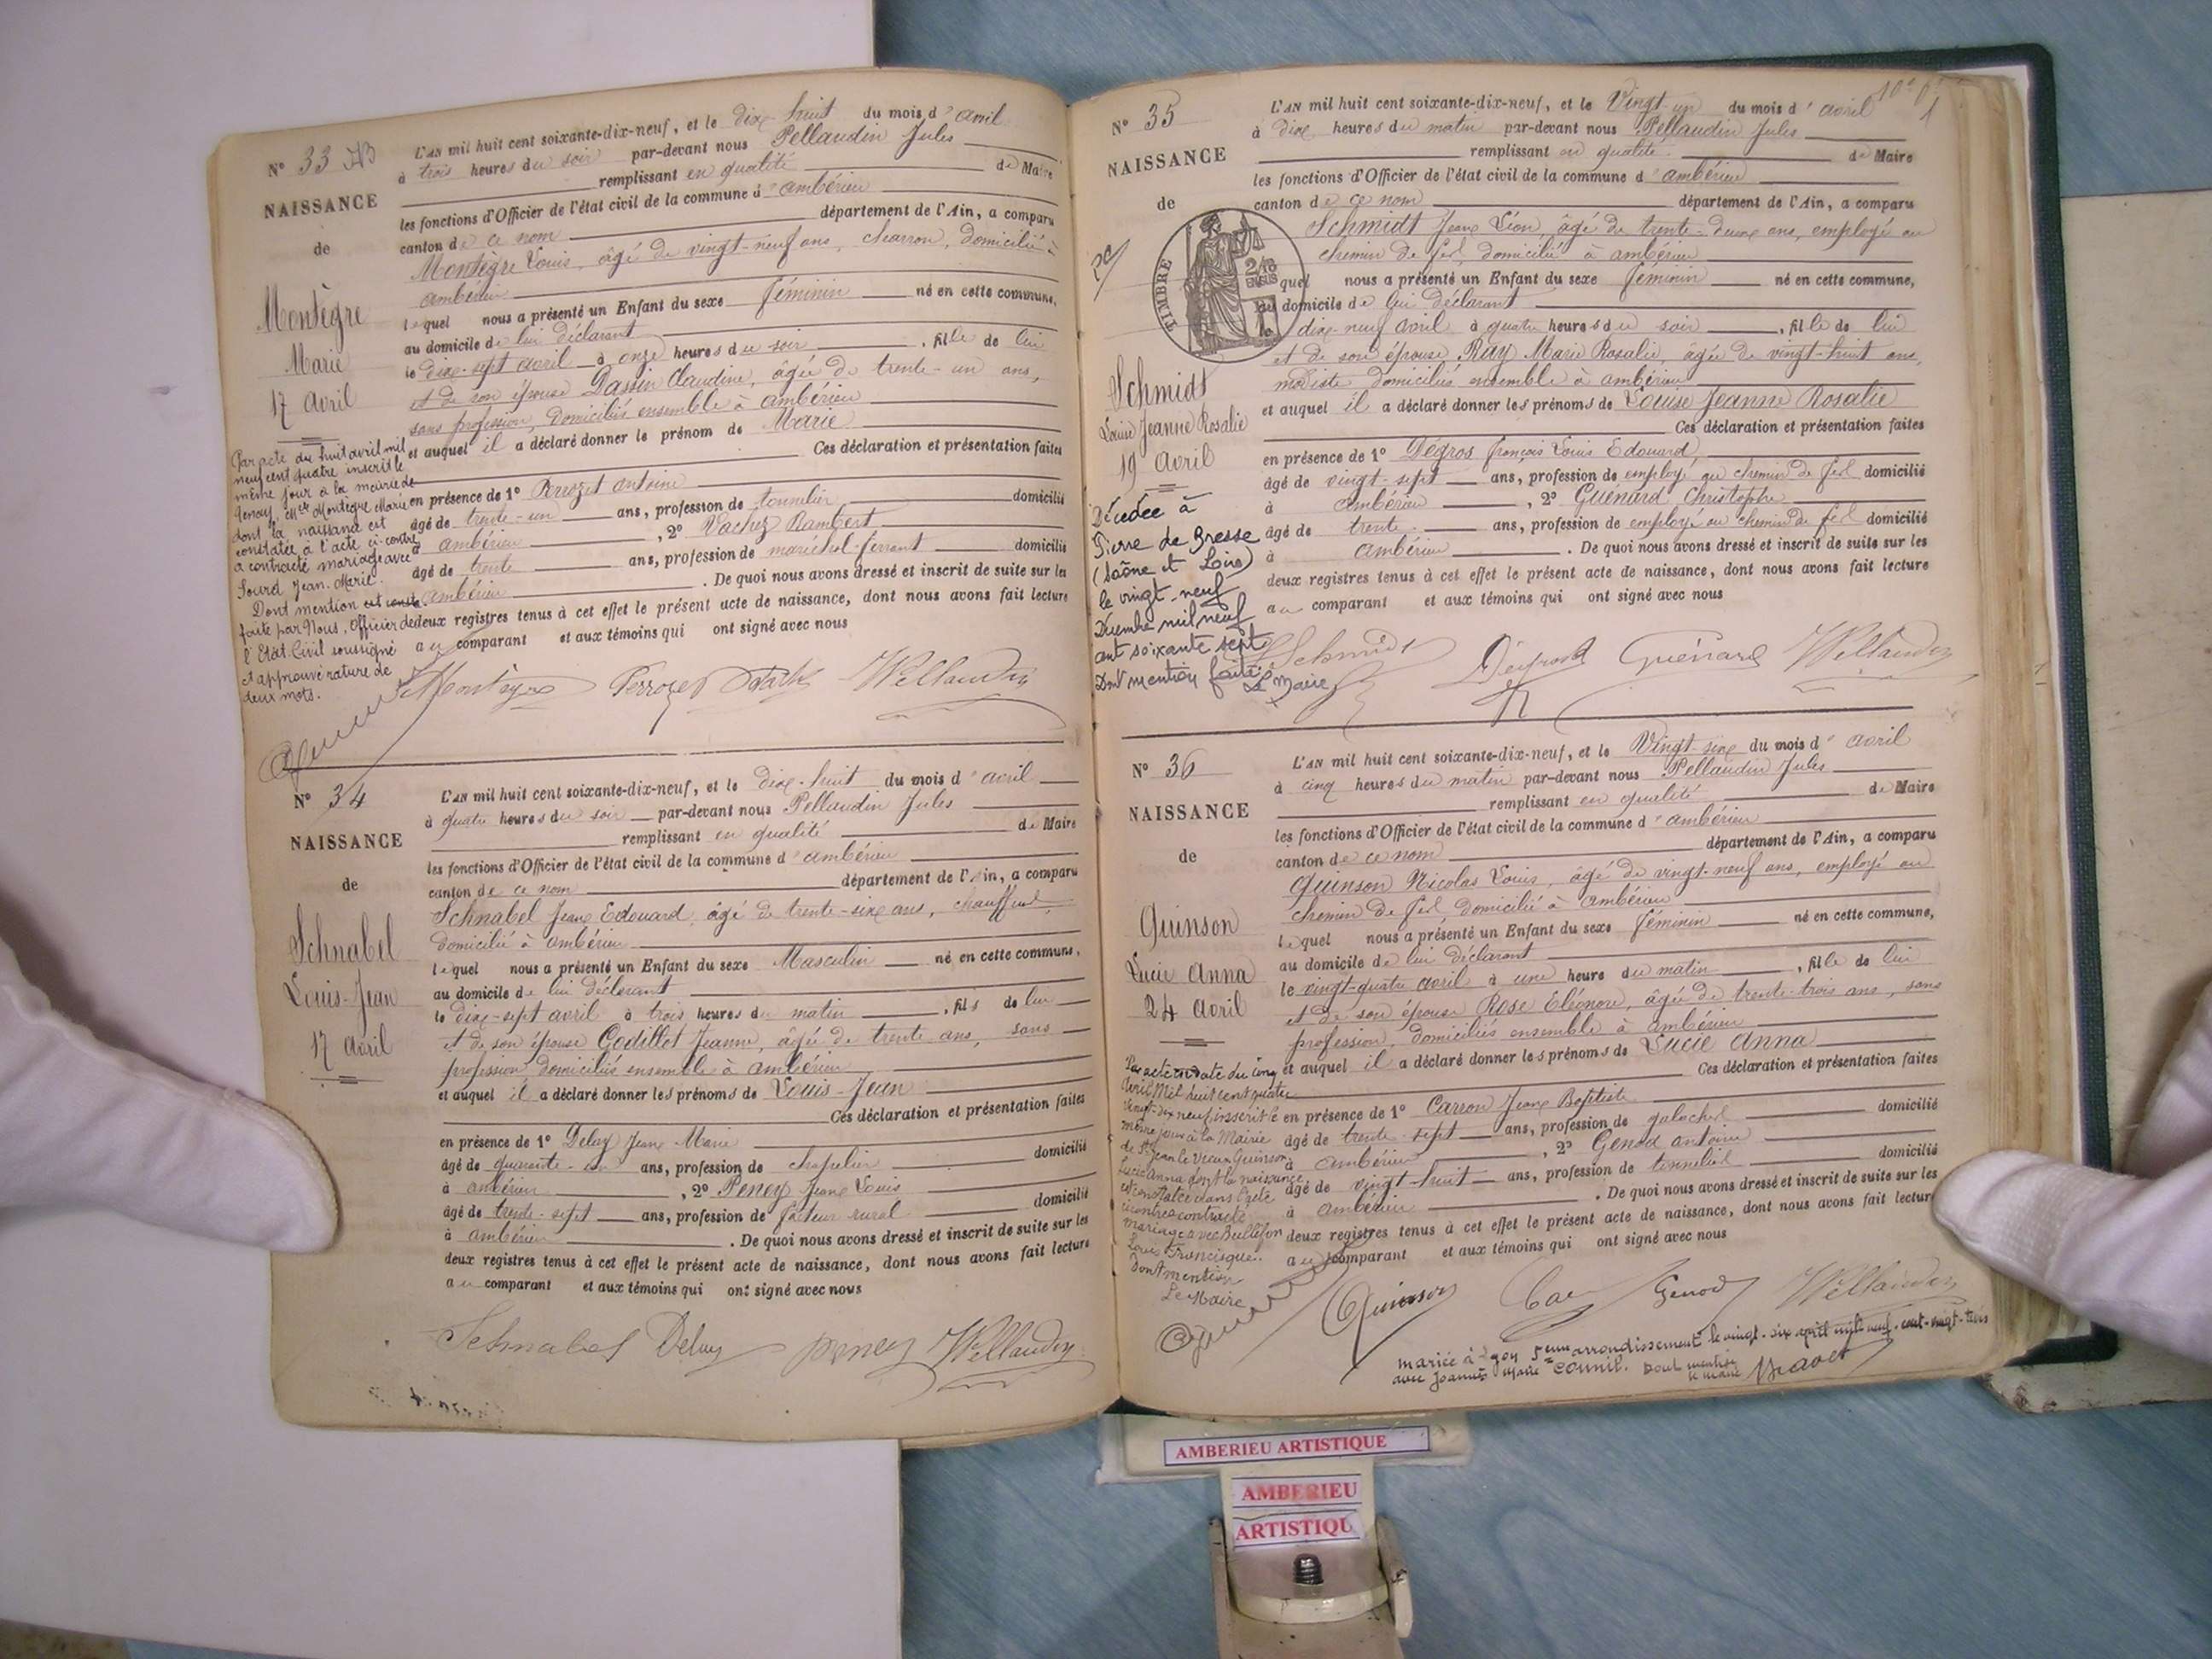 N° 33
NAISSANCE
de
Montègre
Marie
17 Avril
Par acte du huit avril mil
neuf cent quatre inscrit le
même jour à la mairie de
Genay, Mlle Montègre Marie
dont la naissance est
constatée à l'acte ci-contre
a contracté mariage avec
Sourd Jean-Marie.
Dont mention est const.
faite par Nous, Officier de
l'Etat-Civil soussigné
et approuvé rature de
deux mots.
L'AN mil huit cent soixante-dix-neuf, et le dix-huit du mois d'avril
à trois heures du soir par-devant nous Pellaudin Jules
remplissant en qualité de Maire
les fonctions d'Officier de l'état civil de la commune d'ambérieu
canton de ce nom département de l'Ain, a comparu
Montègre Louis, âgé de vingt-neuf ans, charron, domicilié à
ambérieu
lequel nous a présenté un Enfant du sexe féminin né en cette commune,
au domicile de lui déclarant
le dix-sept avril à onze heures du soir, fille de lui
et de son épouse Dassin Claudine, âgée de trente-un ans,
sans profession, domiciliés ensemble à ambérieu
et auquel il a déclaré donner le prénom de Marie
Ces déclaration et présentation faites
en présence de 1° Perrozet antoine
âgé de trente-un ans, profession de tonnelier domicilié
à ambérieu, 2° Vachez Rambert
âgé de trente ans, profession de maréchal-ferrant domicilié
à ambérieu. De quoi nous avons dressé et inscrit de suite sur les
deux registres tenus à cet effet le présent acte de naissance, dont nous avons fait lecture
au comparant et aux témoins qui ont signé avec nous
Montègre Perrozet Pellaudin
N° 34
NAISSANCE
de
Schnabel
Louis-Jean
17 Avril
L'AN mil huit cent soixante-dix-neuf, et le dix-huit du mois d'avril
à quatre heures du soir par-devant nous Pellaudin Jules
remplissant en qualité de Maire
les fonctions d'Officier de l'état civil de la commune d'ambérieu
canton de ce nom département de l'Ain, a comparu
Schnabel Jean Edouard, âgé de trente-six ans, chauffeur,
domicilié à ambérieu
lequel nous a présenté un Enfant du sexe Masculin né en cette commune,
au domicile de lui déclarant
le dix-sept avril à trois heures du matin, fils de lui
et de son épouse Godillot Jeanne, âgée de trente ans, sans
profession domiciliés ensemble à ambérieu
et auquel il a déclaré donner les prénoms de Louis-Jean
Ces déclaration et présentation faites
en présence de 1° Deluy Jean Marie
âgé de quarante-un ans, profession de chapelier domicilié
à ambérieu, 2° Peney Jean Louis
âgé de trente-sept ans, profession de facteur rural domicilié
à ambérieu. De quoi nous avons dressé et inscrit de suite sur les
deux registres tenus à cet effet le présent acte de naissance, dont nous avons fait lecture
au comparant et aux témoins qui ont signé avec nous
Schnabel Deluy peney Pellaudin
N° 35
NAISSANCE
de
TIMBRE
Schmidt
Louise Jeanne Rosalie
19 Avril
Décédée à
Pierre de Bresse
(Saône et Loire)
le vingt-neuf
Décembre mil neuf
cent soixante sept
Dont mention faite
Le Maire
L'AN mil huit cent soixante-dix-neuf, et le Vingt-un du mois d'avril
à dix heures du matin par-devant nous Pellaudin Jules
remplissant en qualité de Maire
les fonctions d'Officier de l'état civil de la commune d'ambérieu
canton de ce nom département de l'Ain, a comparu
Schmidt Jean Léon, âgé de trente-deux ans, employé au
chemin de fer, domicilié à ambérieu
quel nous a présenté un Enfant du sexe féminin né en cette commune,
au domicile de lui déclarant
le dix-neuf avril à quatre heures du soir, fille de lui
et de son épouse Ruy Marie Rosalie, âgée de vingt-huit ans,
modiste domiciliés ensemble à ambérieu
et auquel il a déclaré donner les prénoms de Louise Jeanne Rosalie
Ces déclaration et présentation faites
en présence de 1° Dégros françois Louis Edouard
âgé de vingt-sept ans, profession de employé au chemin de fer domicilié
à ambérieu, 2° Guénard Christophe
âgé de trente ans, profession de employé au chemin de fer domicilié
à ambérieu. De quoi nous avons dressé et inscrit de suite sur les
deux registres tenus à cet effet le présent acte de naissance, dont nous avons fait lecture
au comparant et aux témoins qui ont signé avec nous
Schmidt Guénard Pellaudin
N° 36
NAISSANCE
de
Quinson
Lucie Anna
24 Avril
Par acte en date du cinq
Avril Mil huit cent quatre
vingt-dix neuf, inscrit le
même jour à la Mairie
de St Jean le Vieux Quinson
Lucie Anna dont la naissance
est constatée dans l'acte
ci contre a contracté
mariage avec Bullifon
Louis Francisque.
Dont mention
Le Maire
L'AN mil huit cent soixante-dix-neuf, et le Vingt-six du mois d'avril
à cinq heures du matin par-devant nous Pellaudin Jules
remplissant en qualité de Maire
les fonctions d'Officier de l'état civil de la commune d'ambérieu
canton de ce nom département de l'Ain, a comparu
Quinson Nicolas Louis, âgé de vingt-neuf ans, employé au
chemin de fer, domicilié à ambérieu
lequel nous a présenté un Enfant du sexe féminin né en cette commune,
au domicile de lui déclarant
le vingt-quatre avril à une heure du matin, fille de lui
et de son épouse Rose Eléonore, âgée de trente-trois ans, sans
profession, domiciliés ensemble à ambérieu
et auquel il a déclaré donner les prénoms de Lucie Anna
Ces déclaration et présentation faites
en présence de 1° Carron Jean Baptiste
âgé de trente-sept ans, profession de galocher domicilié
à ambérieu, 2° Genod antoine
âgé de vingt-huit ans, profession de tonnelier domicilié
à ambérieu. De quoi nous avons dressé et inscrit de suite sur les
deux registres tenus à cet effet le présent acte de naissance, dont nous avons fait lecture
au comparant et aux témoins qui ont signé avec nous
Quinson Genod Pellaudin
mariée à Lyon 5eme arrondissement le vingt-six avril mil neuf-cent-vingt-trois
avec Joannès Marie Counil. Dont mention
le maire
AMBERIEU ARTISTIQUE
AMBERIEU
ARTISTIQU